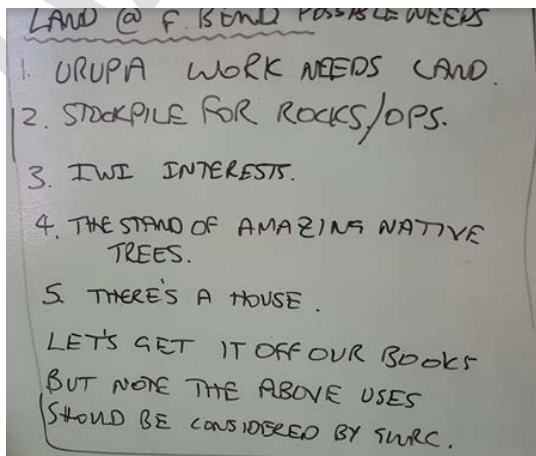 LAND @ F. BEND POSSIBLE NEEDS
1. URUPA WORK NEEDS LAND.
2. STOCKPILE FOR ROCKS/OPS.
3. IWI INTERESTS.
4. THE STAND OF AMAZING NATIVE
TREES.
5. THERE'S A HOUSE.
LET'S GET IT OFF OUR BOOKS
BUT NOTE THE ABOVE USES
SHOULD BE CONSIDERED BY GWRC.